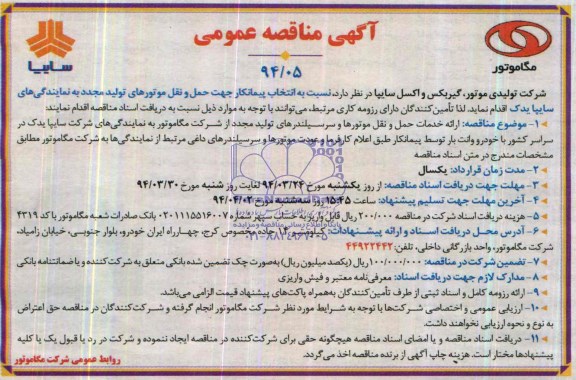 آگهی مناقصه عمومی
۹۴/۰۵
سایپا
مگاموتور
شرکت تولیدی موتور، گیربکس و اکسل سایپا در نظر دارد، نسبت به انتخاب پیمانکار جهت حمل و نقل موتورهای تولید مجدد به نمایندگی‌های
سایپا یدک اقدام نماید. لذا تأمین‌کنندگان دارای رزومه کاری مرتبط، می‌توانند با توجه به موارد ذیل نسبت به دریافت اسناد مناقصه اقدام نمایند:
۱- موضوع مناقصه: ارائه خدمات حمل و نقل موتورها و سرسیلندرهای تولید مجدد از شرکت مگاموتور به نمایندگی‌های شرکت سایپا یدک در
سراسر کشور با خودرو وانت بار توسط پیمانکار طبق اعلام کارفرما و عودت موتورها و سرسیلندرهای داغی مرتبط از نمایندگی‌ها به شرکت مگاموتور مطابق
مشخصات مندرج در متن اسناد مناقصه
۲- مدت زمان قرارداد: یکسال
۳- مهلت جهت دریافت اسناد مناقصه: از روز یکشنبه مورخ ۹۴/۰۳/۲۴ لغایت روز شنبه مورخ ۹۴/۰۳/۳۰
۴- آخرین مهلت جهت تسلیم پیشنهاد: ساعت ۱۵:۴۵ روز سه‌شنبه مورخ ۹۴/۰۴/۰۲
۵- هزینه دریافت اسناد شرکت در مناقصه ۲۰۰/۰۰۰ ریال قابل واریز به حساب سپهر شماره ۰۲۰۱۱۱۵۵۱۶۰۰۷ بانک صادرات شعبه مگاموتور با کد ۴۳۱۹
۶- آدرس محل دریافت اسناد و ارائه پیشنهادات: کیلومتر ۱۴ جاده مخصوص کرج، چهارراه ایران خودرو، بلوار جنوبی، خیابان زامیاد،
شرکت مگاموتور، واحد بازرگانی داخلی، تلفن: ۴۴۹۲۲۴۴۲
۷- تضمین شرکت در مناقصه: ۱۰۰/۰۰۰/۰۰۰ ریال (یکصد میلیون ریال) به‌صورت چک تضمین شده بانکی متعلق به شرکت‌کننده و یا ضمانتنامه بانکی
۸- مدارک لازم جهت دریافت اسناد: معرفی‌نامه معتبر و فیش واریزی
۹- ارائه رزومه کامل و اسناد ثبتی از طرف تأمین‌کنندگان به‌همراه پاکت‌های پیشنهاد قیمت الزامی می‌باشد.
۱۰- ارزیابی عمومی و اختصاصی شرکت‌ها با توجه به شرایط مورد نظر شرکت مگاموتور انجام گرفته و شرکت‌کنندگان در مناقصه حق اعتراض
به نوع و نحوه ارزیابی نخواهند داشت.
۱۱- دریافت اسناد مناقصه و یا امضای اسناد مناقصه هیچگونه حقی برای شرکت‌کننده در مناقصه ایجاد ننموده و شرکت در رد یا قبول یک یا کلیه
پیشنهادها مختار است. هزینه چاپ آگهی از برنده مناقصه اخذ می‌گردد.
روابط عمومی شرکت مگاموتور